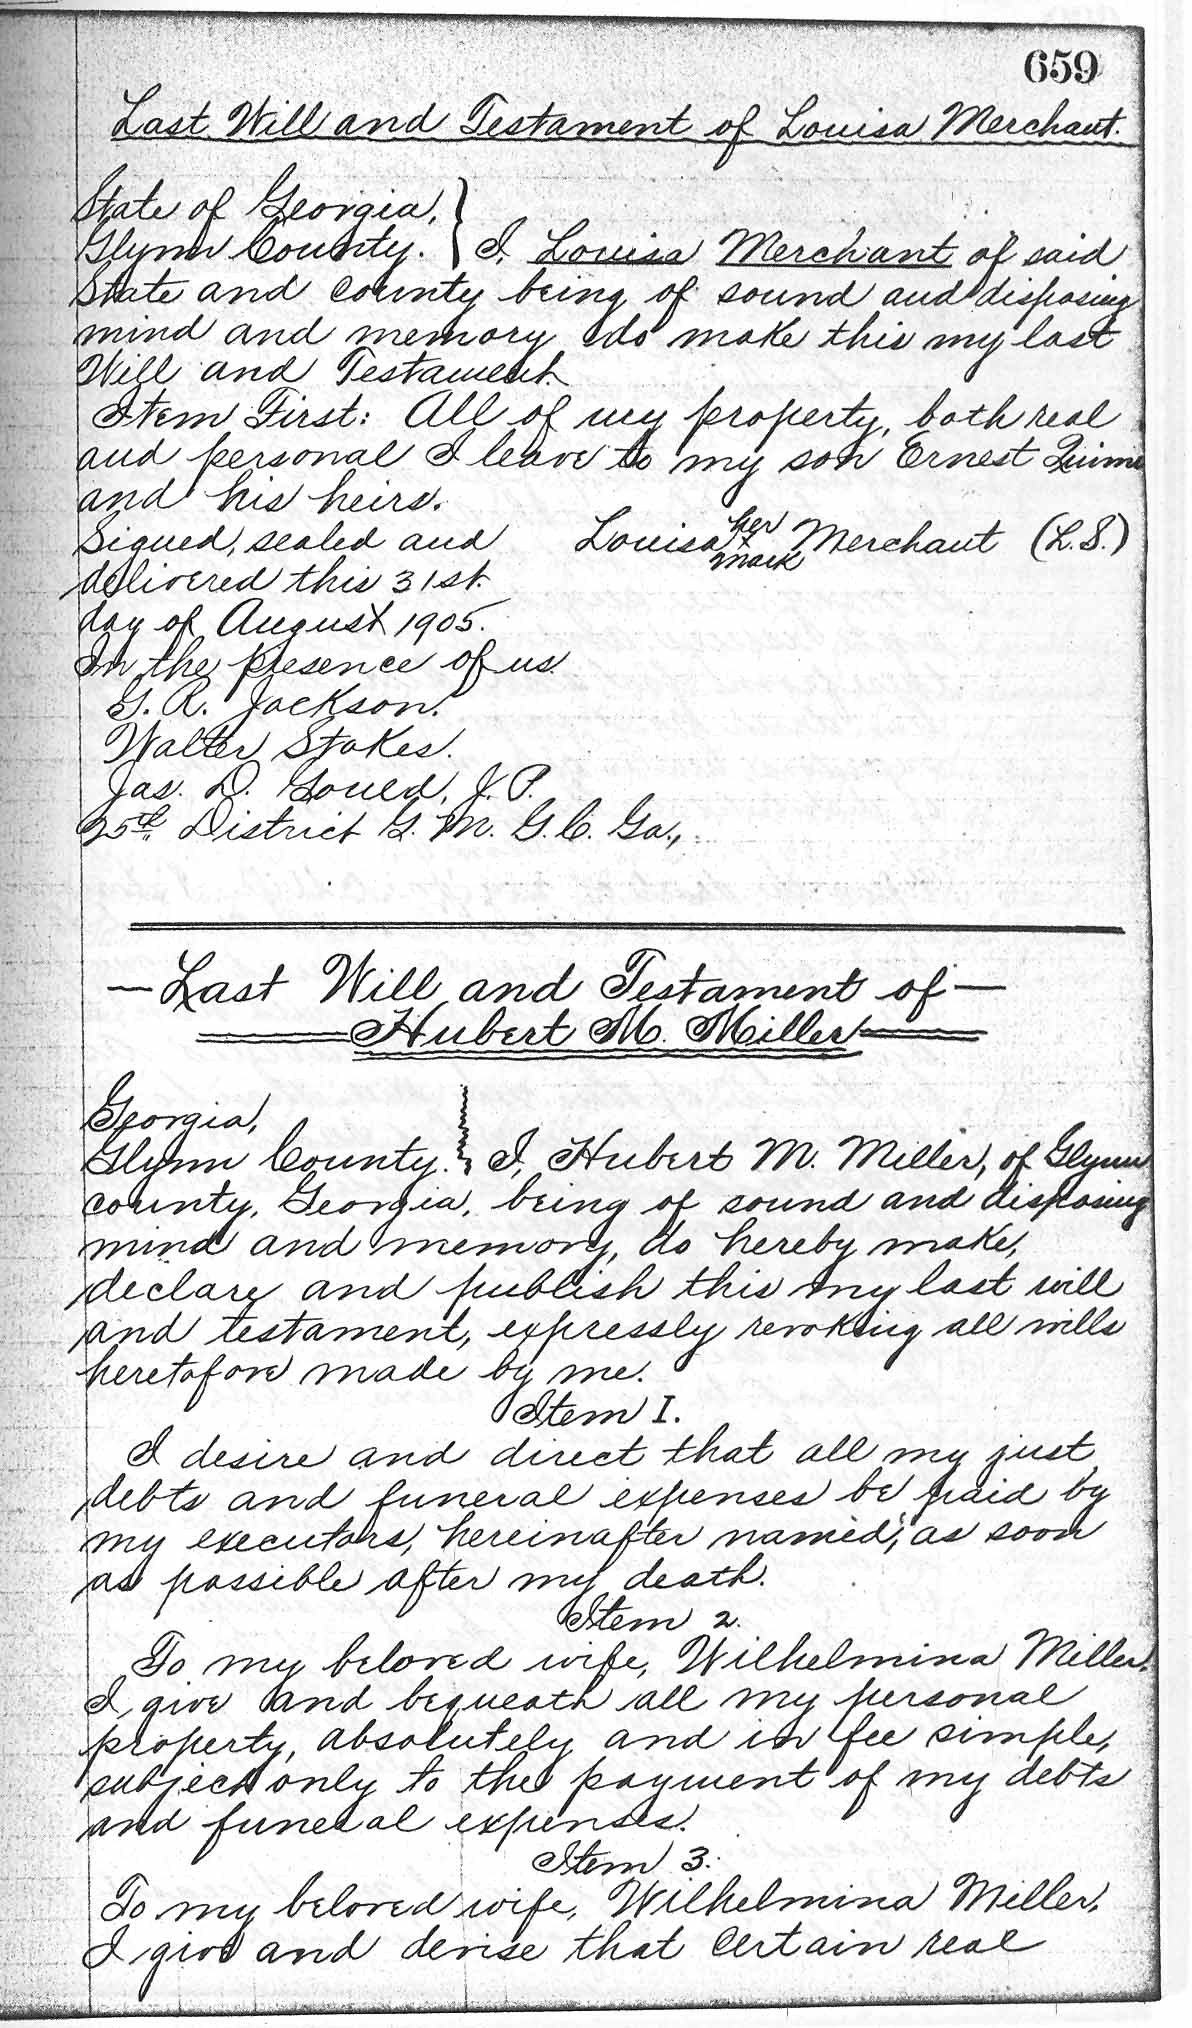 659
Last Will and Testament of Louisa Merchant.
State of Georgia,
Glynn County. } I, Louisa Merchant of said
State and county being of sound and disposing
mind and memory do make this my last
Will and Testament.
Item First: All of my property, both real
and personal I leave to my son Ernest
and his heirs.
Signed, sealed and
Louisa her x mark Merchant (L.S.)
delivered this 31st.
day of August 1905.
In the presence of us.
G. R. Jackson.
Walter Stokes.
Jas. D. Gould, J. P.
25th District G. M. G. C. Ga.,
— Last Will and Testament of —
Hubert M. Miller
Georgia,
Glynn County. } I, Hubert M. Miller, of Glynn
county, Georgia, being of sound and disposing
mind and memory, do hereby make,
declare and publish this my last will
and testament, expressly revoking all wills
heretofore made by me.
Item 1.
I desire and direct that all my just
debts and funeral expenses be paid by
my executors, hereinafter named, as soon
as possible after my death.
Item 2.
To my beloved wife, Wilhelmina Miller,
I give and bequeath all my personal
property, absolutely and in fee simple,
subject only to the payment of my debts
and funeral expenses.
Item 3.
To my beloved wife, Wilhelmina Miller,
I give and devise that certain real